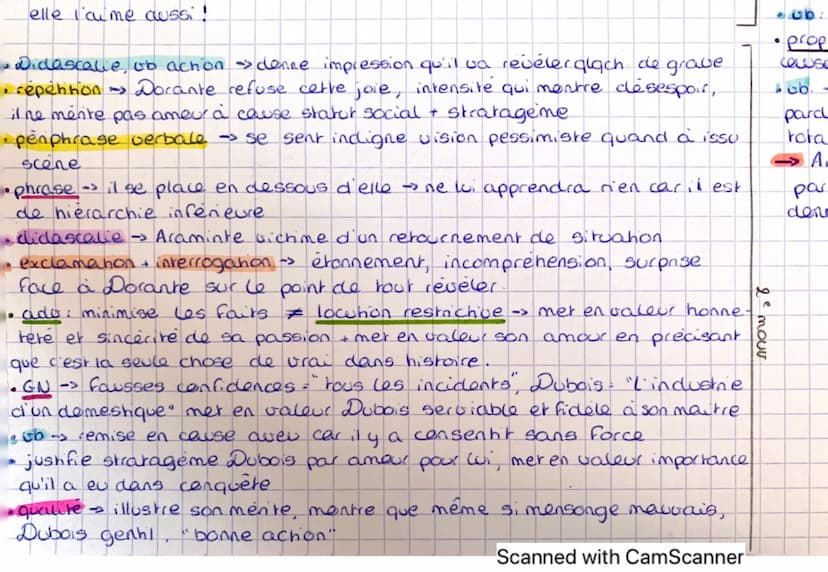 elle l'aime aussi !
• Didascalie, vb action → donne impression qu'il va révéler qlqch de grave
• répétition → Dorante refuse cette joie, intensité qui montre désespoir,
il ne mérite pas amour à cause statut social + stratagème
• périphrase verbale → se sent indigne vision pessimiste quand à issu
scène
• phrase → il se place en dessous d'elle → ne lui apprendra rien car il est
de hiérarchie inférieure
• didascalie → Araminte victime d'un retournement de situation
• exclamation + interrogation → étonnement, incompréhension, surprise
face à Dorante sur le point de tout révéler.
• adv : minimise les faits ≠ locution restrictive → met en valeur honne-
teté et sincérité de sa passion + met en valeur son amour en précisant
que c'est la seule chose de vrai dans histoire.
• GN → fausses confidences = "tous les incidents", Dubois = "l'industrie
d'un domestique" met en valeur Dubois serviable et fidèle à son maître
• vb → remise en cause aveu car il y a consentit sans force
• justifie stratagème Dubois par amour pour lui, met en valeur importance
qu'il a eu dans conquête
• qualité → illustre son mérite, montre que même si mensonge mauvais,
Dubois gentil, "bonne action"
2e mouv
• vb :
• prop
cause
• vb. -
pard
rota
→ Ar
par
donn
Scanned with CamScanner